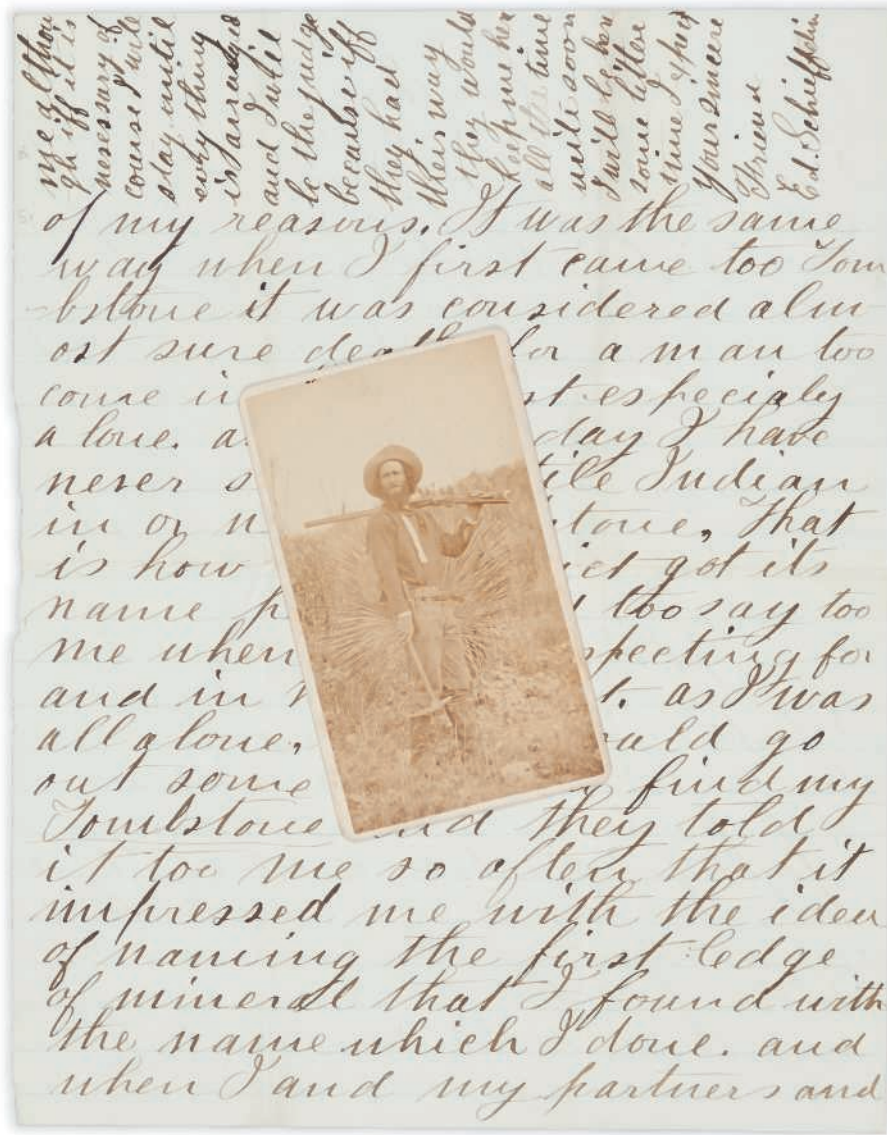 me althou
gh iff it is
nessary of
course I will
stay until
evry thing
is arranged
and I will
be the judge
because iff
they had
their way
they would
keep me her
all the time
write soon
I will be her
some
time I
Your sincere
Friend
Ed. Schieffelin
of my reasons. It was the same
way when I first came too Tom
bstone it was considered alm
ost sure death for a man too
come in st especialy
alone. a day I have
never s tile Indian
in or n tone, That
is how ict got its
name p too say too
me when specting for
and in t. as I was
all alone, uld go
out some find my
Tombstone and they told
it too me so often that it
impressed me with the idea
of naming the first ledge
of mineral that I found with
the name which I done. and
when I and my partners and